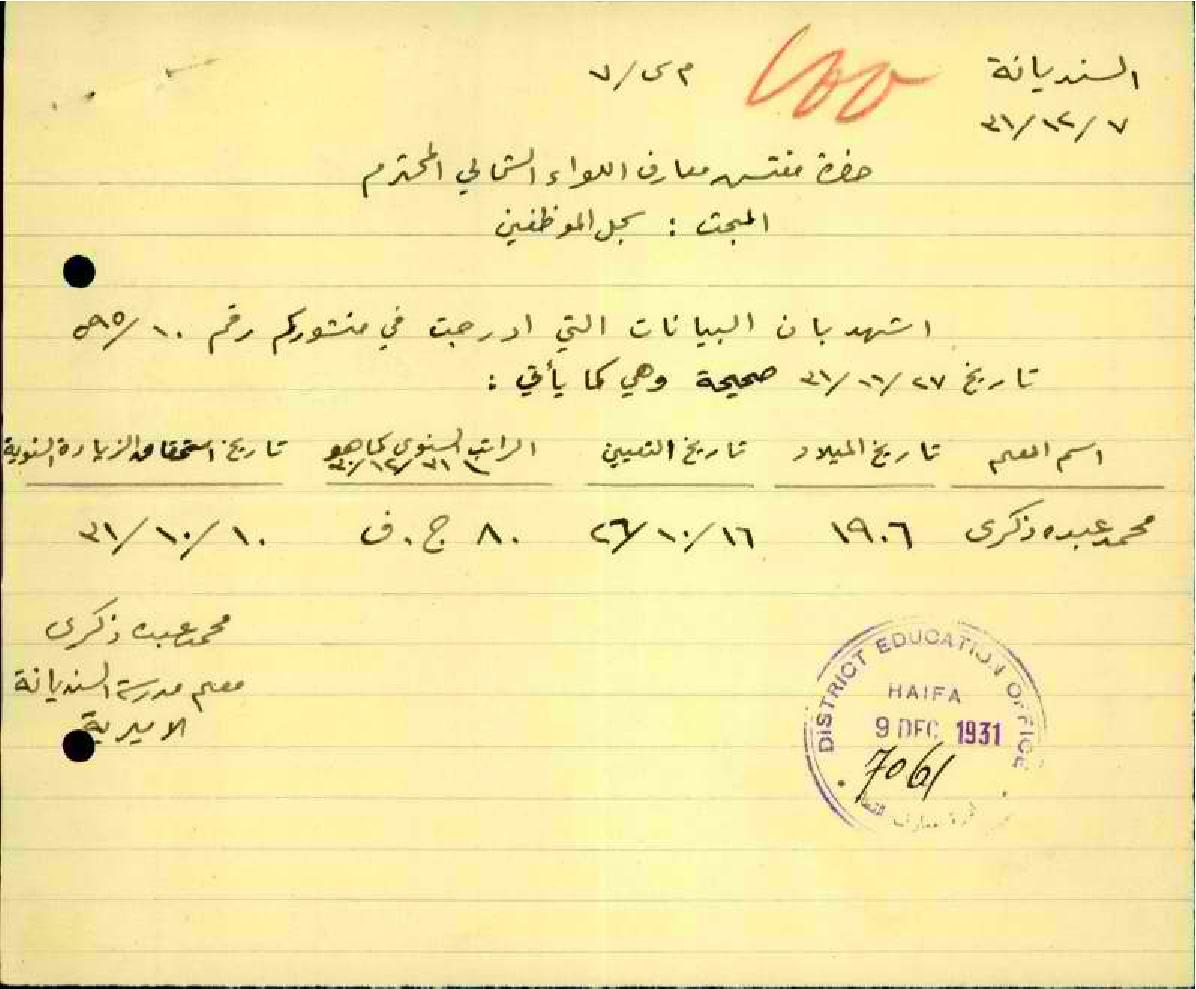 السنديانة
٣١/١٢/٧
م س/٧
حضرة مفتش معارف اللواء الشمالي المحترم
المبحث : سجل الموظفين
اشهد بان البيانات التي ادرجت في منشوركم رقم ٥٩٥/١٠
تاريخ ٣١/١١/٢٧ صحيحة وهي كما يأتي :
اسم المعلم تاريخ الميلاد تاريخ التعيين الراتب السنوي كما هو تاريخ استحقاق الزيادة السنوية
محمد عبده ذكرى ١٩٠٦ ٢٦/١٠/١٦ ٨٠ ج. ف ٣١/١٠/١٠
محمد عبده ذكرى
معلم مدرسة السنديانة
الاميرية
DISTRICT EDUCATION OFFICE
HAIFA
9 DEC 1931
7061